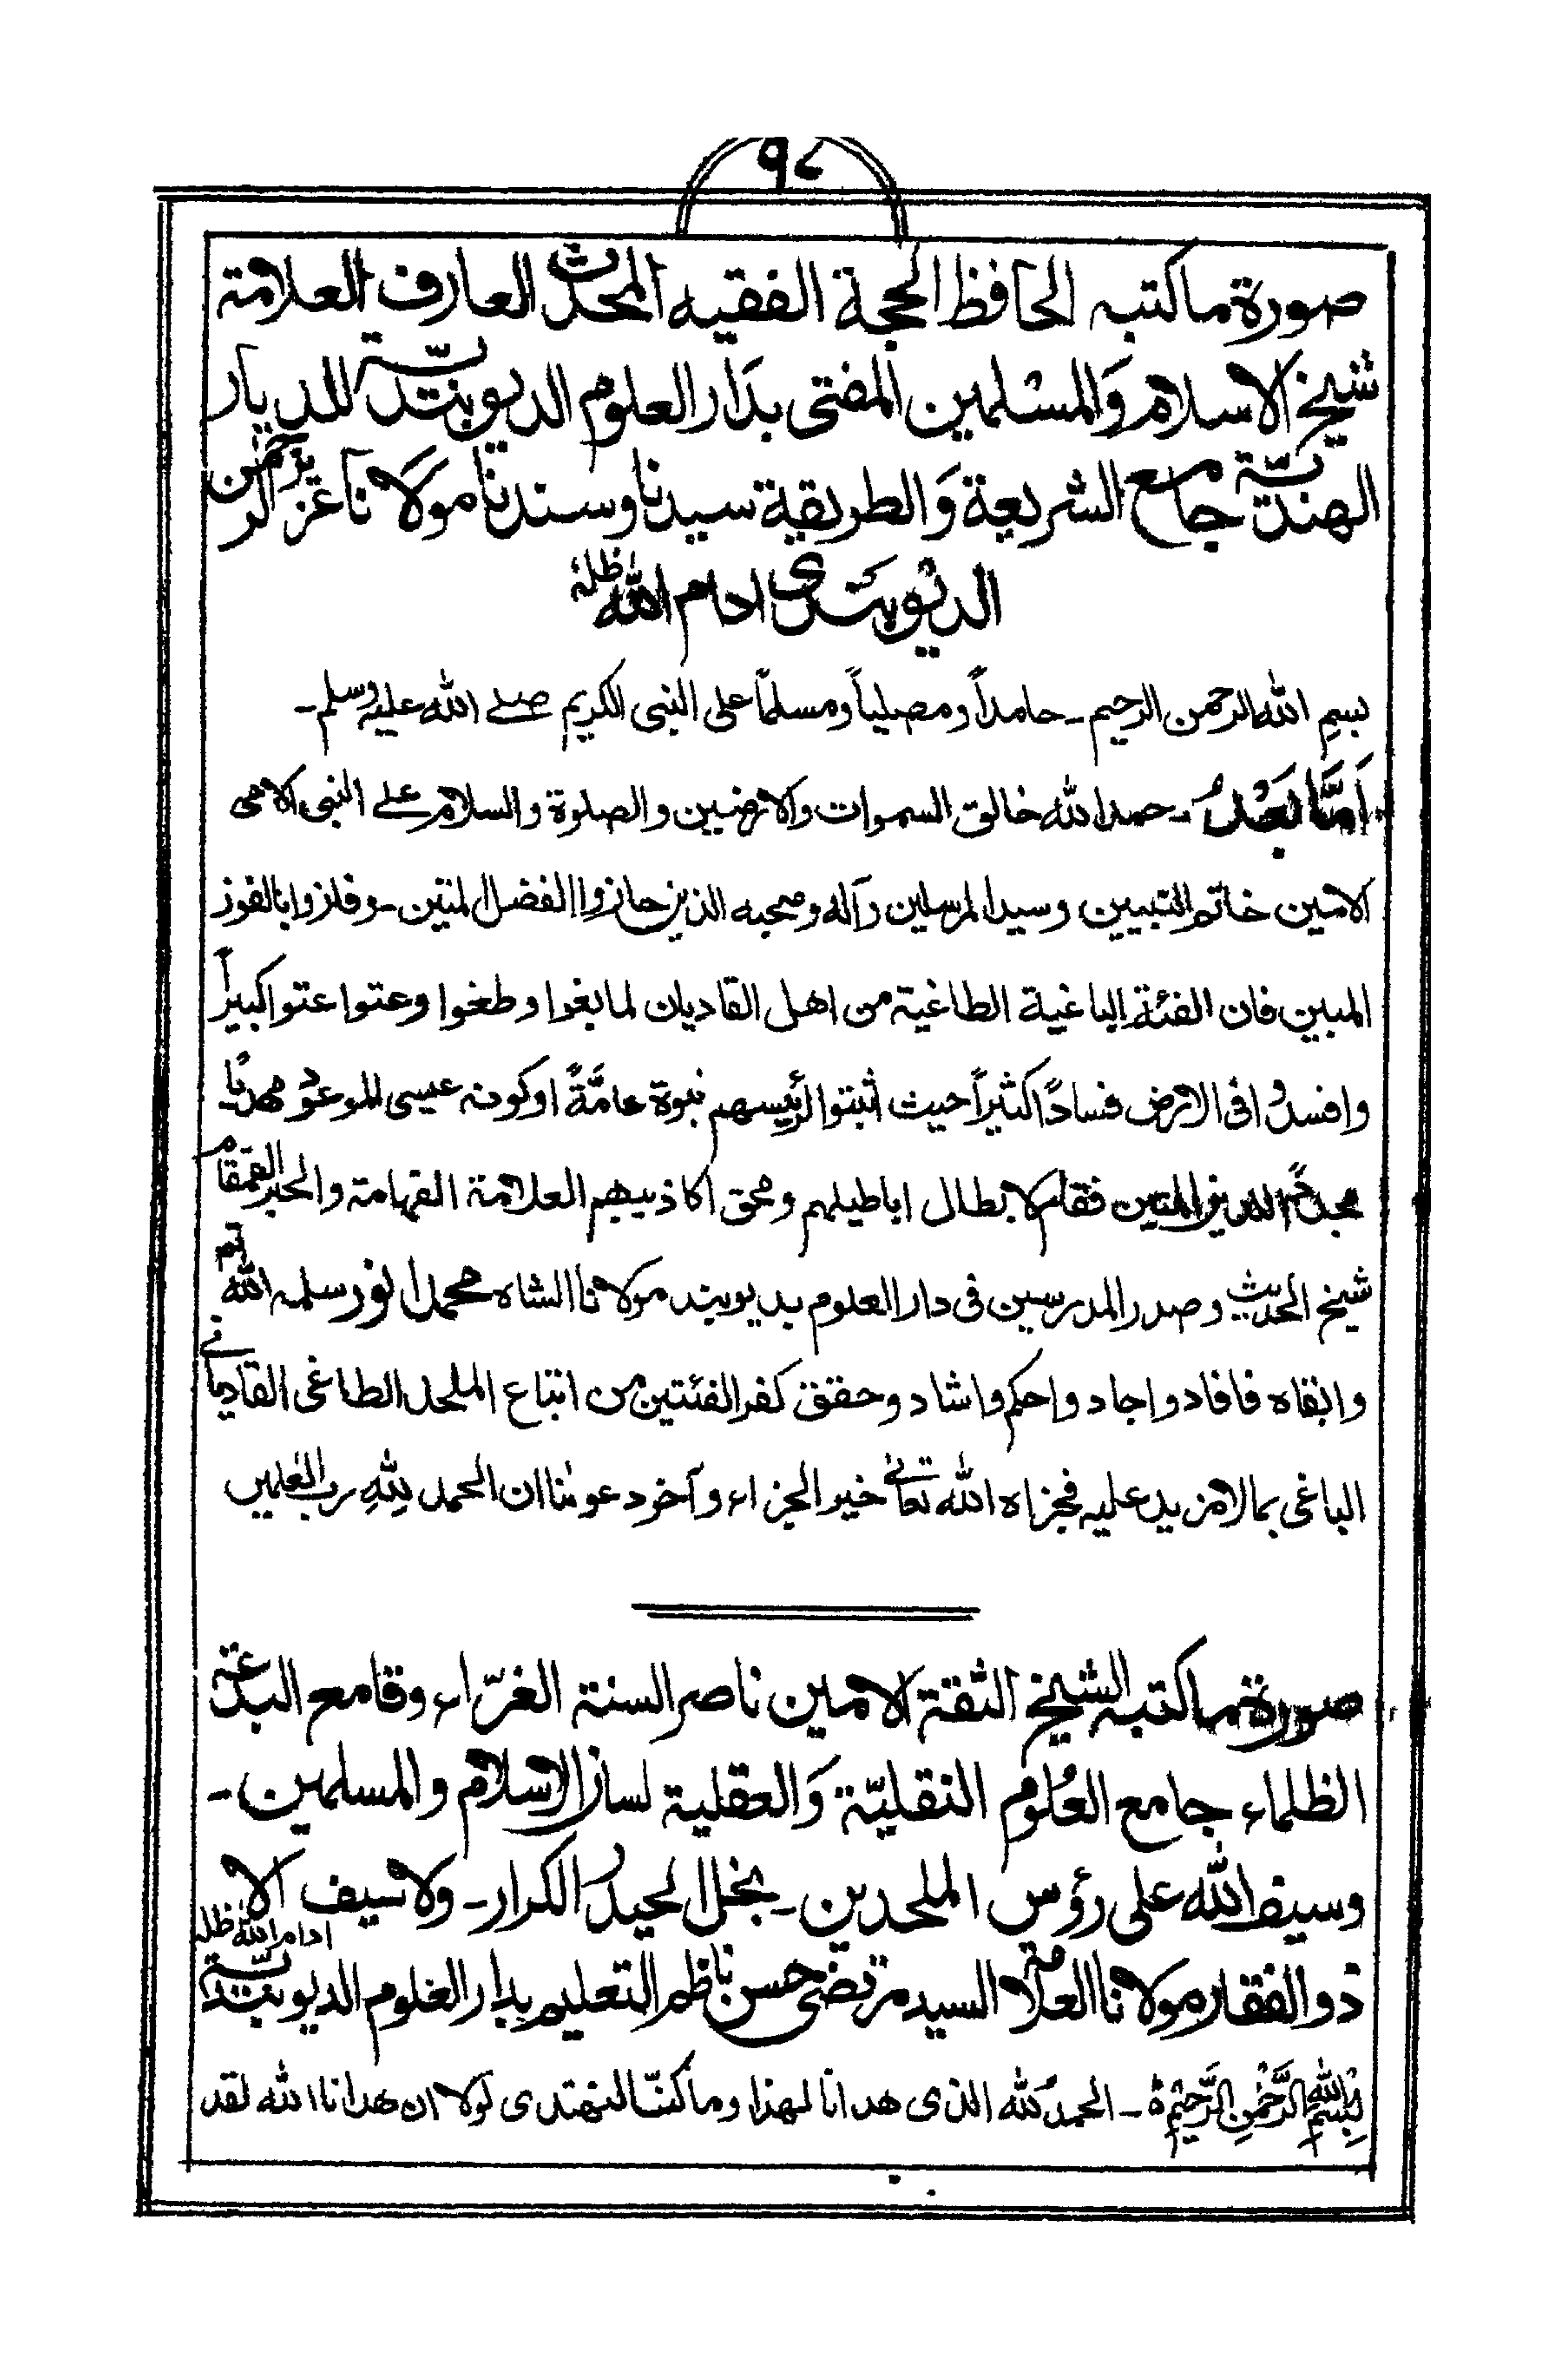 ٩٤
صورة ماكتبه الحافظ الحجة الفقيه المحدث العارف العلامة
شيخ الاسلام وَالمسلمين المفتى بدَار العلوم الديوبنديّة للديار
الهنديّة جامع الشريعة وَالطريقة سيدنا وسندنا مولانا عزيز الرحمٰن
الديوبندى ادام الله ظله
بسم الله الرحمن الرحيم ـ حامداً ومصلياً ومسلماً على النبى الكريم صلے الله عليه وسلم ـ
اَمَّا بَعْدُ ـ حمد الله خالق السموات والارضين والصلوة والسلام علے النبى الامى
الامين خاتم النبيين وسيد المرسلين وآله وصحبه الذين حازوا الفضل المتين ـ وفازوا بالفوز
المبين فان الفئة الباغية الطاغية من اهل القاديان لما بغوا وطغوا وعتوا عتوا كبيراً
وافسدُوا فى الارض فسادًا كثيراً حيث أثبتوا لرئيسهم نبوة عامَّةً اوكونه عيسى الموعود مهديًا
مجددًا للدين المتين فقام لابطال اباطيلهم ومحق اكاذيبهم العلامة الفهامة والحبر القمقام
شيخ الحديث وصدر المدرسين فى دار العلوم بديوبند مولانا الشاه محمد انور سلمه الله تم
وابقاه فافاد واجاد واحكم واشاد وحقق كفر الفئتين من اتباع الملحد الطاغى القاديانے
الباغى بمالامزيد عليه فجزاه الله تعالے خير الجزاء وآخر دعوٰنا ان الحمد لِلّٰهِ رب العٰلمين
صورة ماكتبه الشيخ الثقة الامين ناصر السنة الغرّاء وقامع البدعة
الظلماء جامع العُلوم النقليّة وَالعقلية لسان الاسلام والمسلمين ـ
وسيف الله على رؤس الملحدين ـ نجل الحيدر الكرار ـ ولاسيف الا
ذوالفقار مولانا العلامة السيد مرتضى حسن ناظم التعليم بدار العلوم الديوبنديّة ادام الله ظله
بِسْمِ اللهِ الرَّحْمٰنِ الرَّحِيْمِ ـ الحمدُ لله الذى هدانا لهذا وما كنّا لنهتدى لولا ان هدانا الله لقد